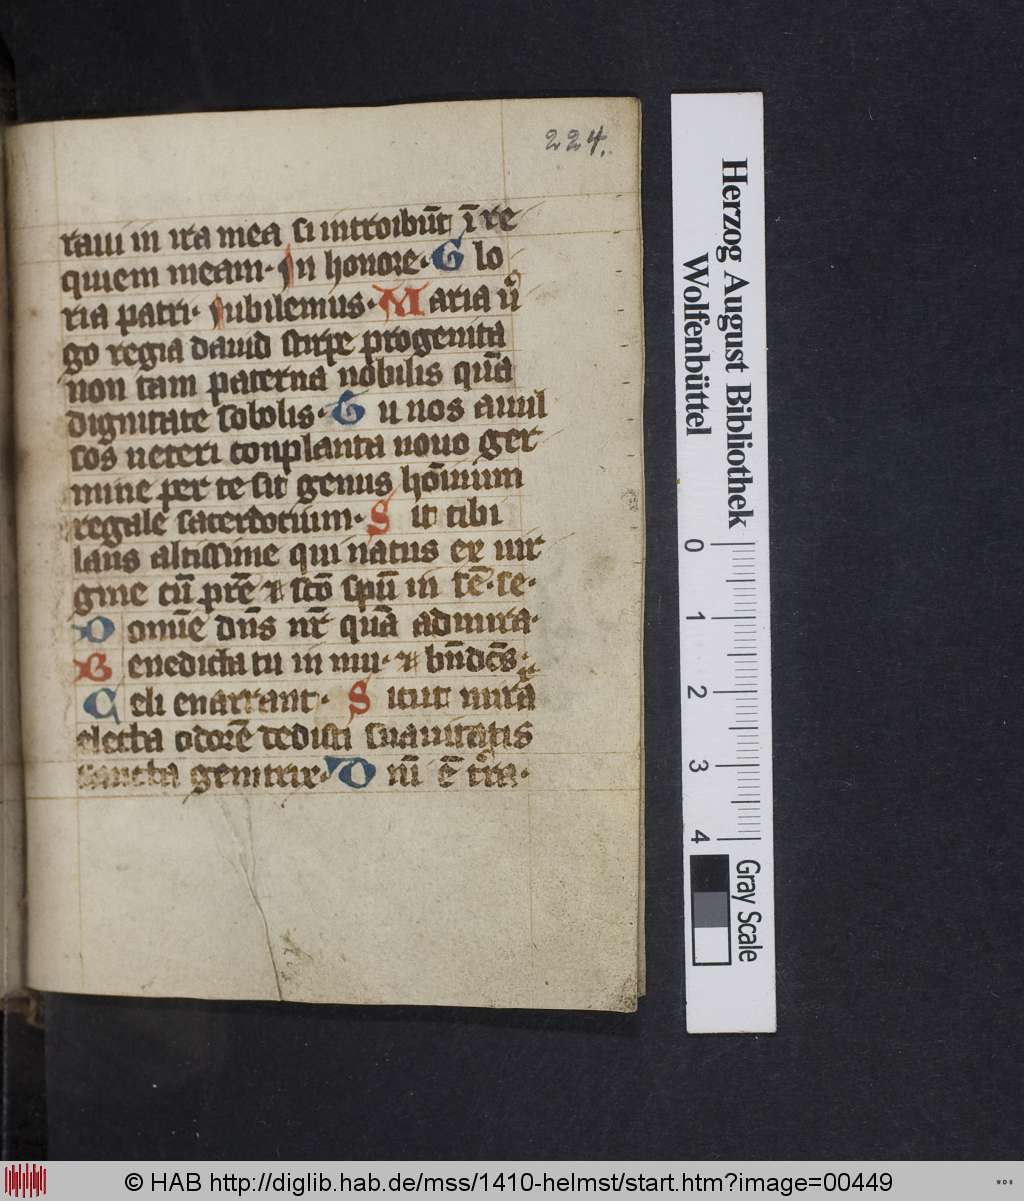 224.
raui in ira mea si introibūt ī re
quiem meam· In honore· Glo
ria patri· Iubilemus· Maria uͦ
go regia dauid stirpe progenita
non tam paterna nobilis quā
dignitate sobolis· Tu nos auul
sos ueteri conplanta nouo ger
mine per te sit genus hōinum
regale sacerdotium· Sit tibi
laus altissime qui natus ex uir
gine cū prē ⁊ scō spū in
Domīe dn̄s nr̄ quā admira·
Benedicta tu in mu· ⁊ bn̄dc̄s·
Celi enarrant· Sicut mirra
electa odorē dedisti suauitatis
sancta genitrix· Dnī ē tͬra·
Herzog August Bibliothek
Wolfenbüttel
0 1 2 3 4
Gray Scale
© HAB http://diglib.hab.de/mss/1410-helmst/start.htm?image=00449